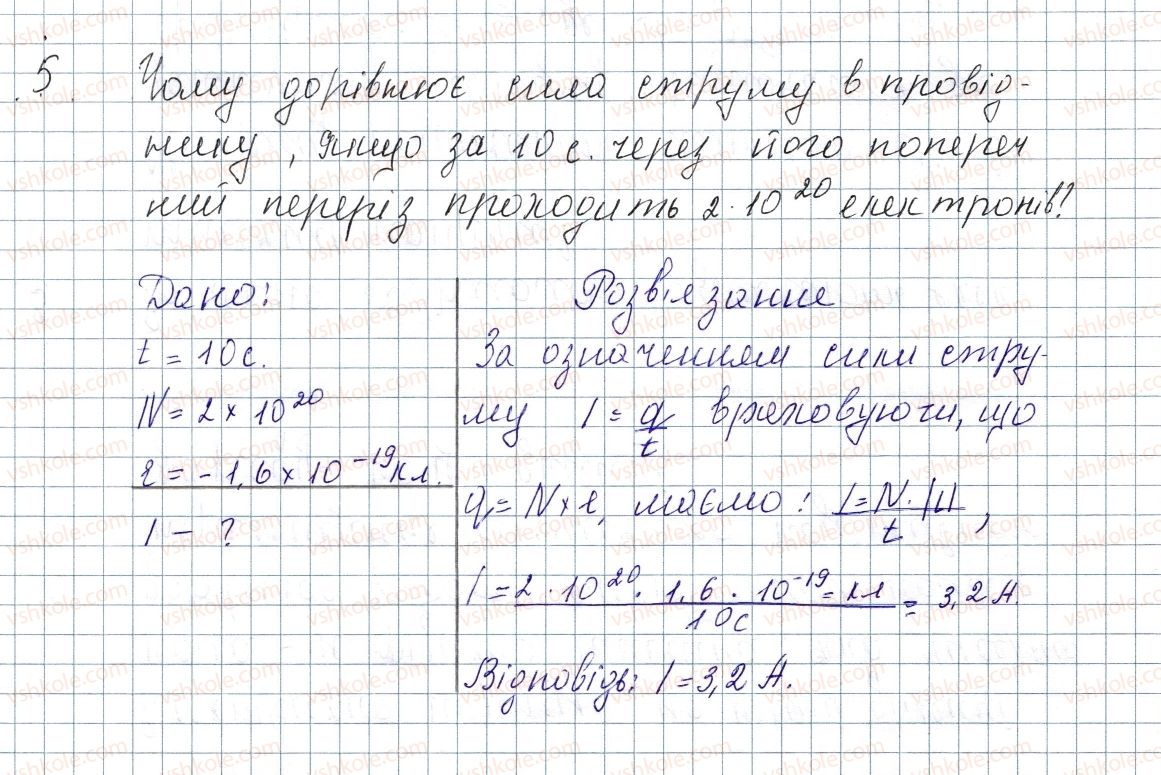 5. Чому дорівнює сила струму в провід-
нику, якщо за 10 с. через його попереч
ний переріз проходить 2 · 10²⁰ електронів?
Дано:
t = 10 с.
N = 2 × 10²⁰
e = -1,6 × 10⁻¹⁹ кл.
I - ?
Розв'язання
За означенням сили стру-
му I = q/t враховуючи, що
q = N × e, маємо: I = N · |e| / t,
I = 2 · 10²⁰ · 1,6 · 10⁻¹⁹ кл / 10 с = 3,2 А.
Відповідь: I = 3,2 А.
vshkole.com